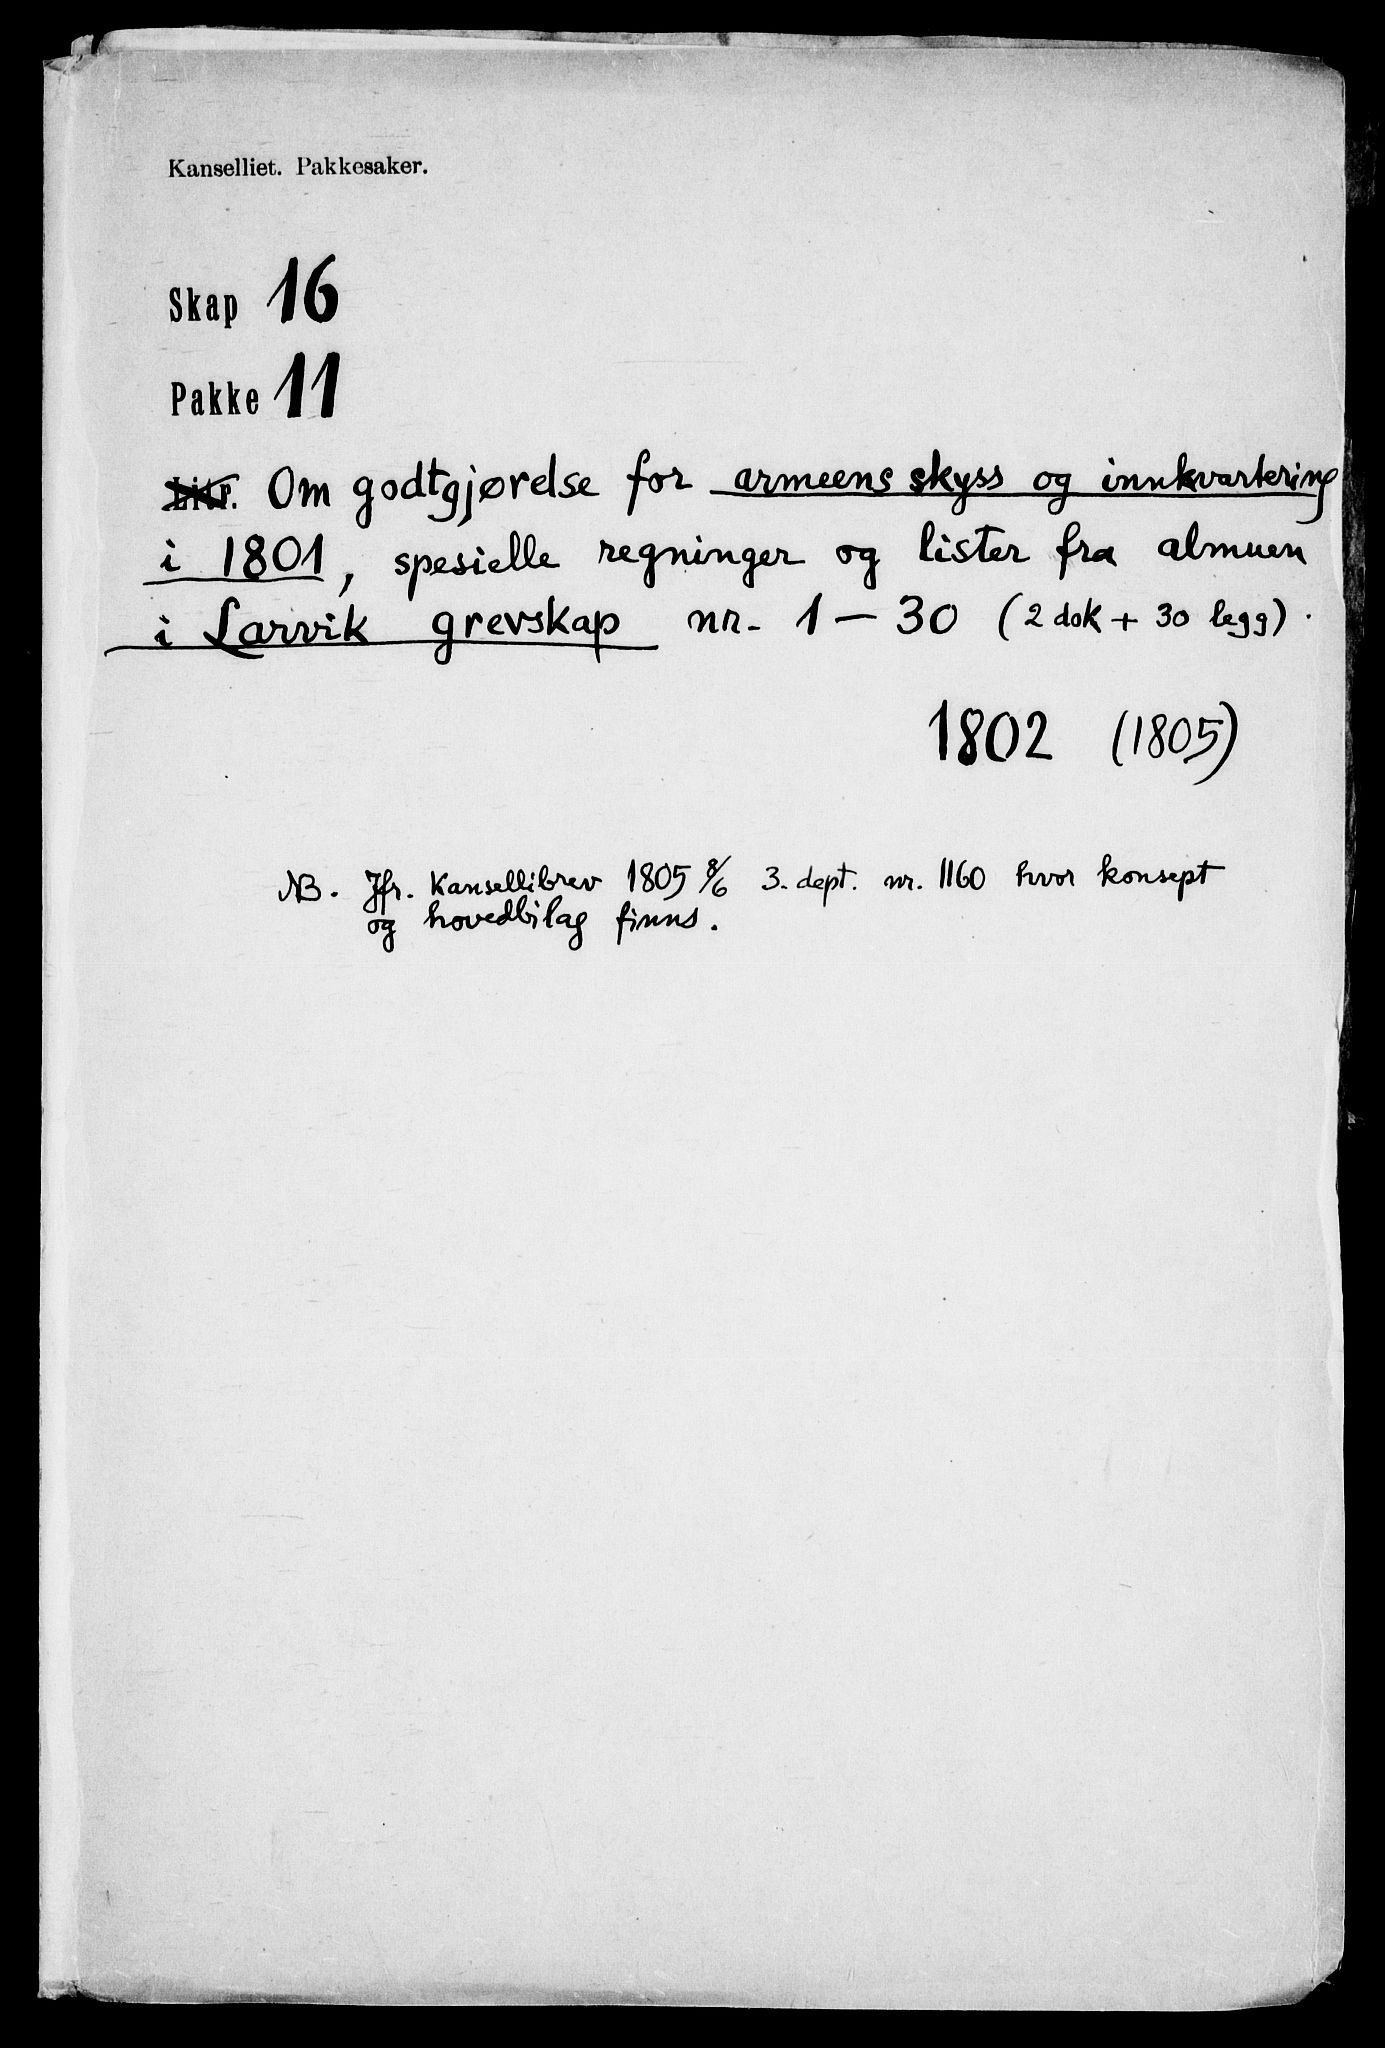 Kanselliet. Pakkesaker.
Skap 16
Pakke 11
Litr. Om godtgjørelse for armeens skyss og innkvartering
i 1801, spesielle regninger og lister fra almuen
i Larvik grevskap nr. 1 - 30 (2 dok + 30 legg).
1802 (1805)
NB. Jfr. Kansellibrev 1805 8/6 3. dept. nr. 1160 hvor konsept
og hovedbilag finns.